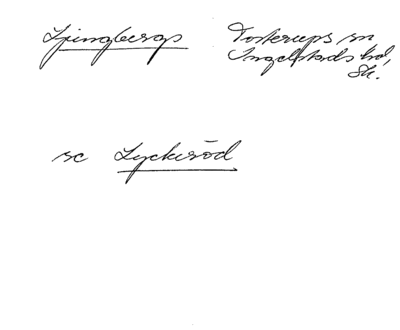 Ljungbergs
Tosterups sn
Ingelstads hd,
Sk.
se Lyckeröd